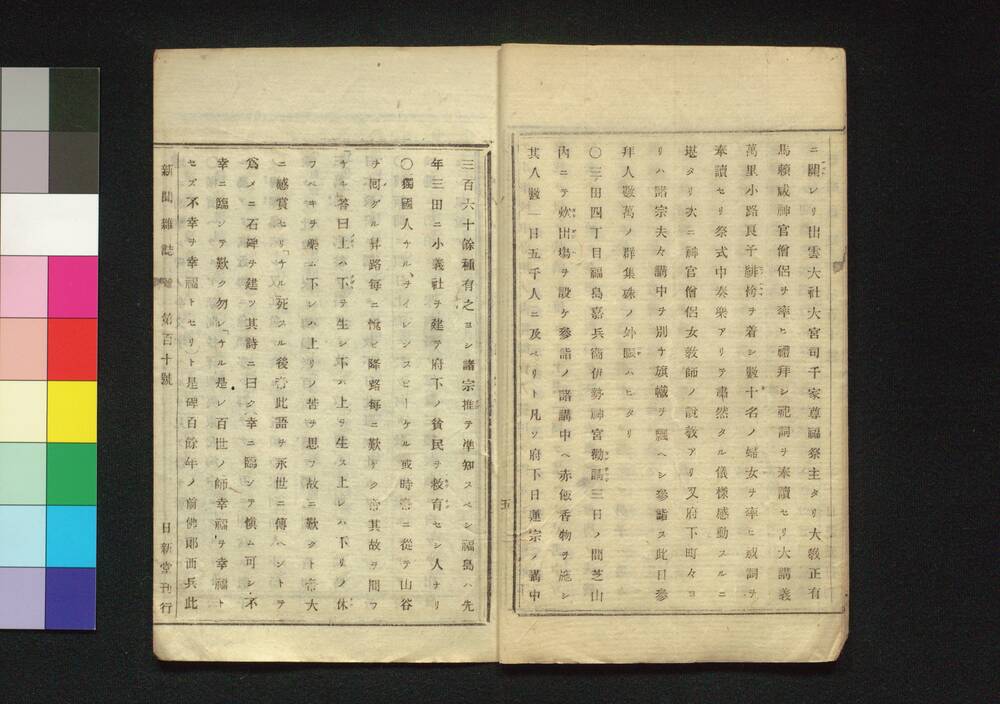 ニ關レリ出雲大社大宮司千家尊福祭主タリ大教正有
馬頼咸神官僧侶ヲ率ヒ禮拜シ祀詞ヲ奉讀セリ大講義
萬里小路良子緋袴ヲ着シ數十名ノ婦女ヲ率ヒ戒詞ヲ
奉讀セリ祭式中奏樂アリテ肅然タル儀樣感動スルニ
堪タリ次ニ神官僧侶女教師ノ説教アリ又府下町々ヨ
リハ諸宗夫々講中ヲ別ケ旗幟ヲ飄ヘシ參詣ス此日參
拜人數萬ノ群集殊ノ外賑ハヒタリ
〇三田四丁目福島嘉兵衞伊勢神宮勸請三日ノ間芝山
内ニテ炊出塲ヲ設ケ參詣ノ諸講中ヘ赤飯香物ヲ施シ
其人數一日五千人ニ及ベリト凡ソ府下日蓮宗ノ講中
三百六十餘種有之ヨシ諸宗推テ準知スベシ福島ハ先
年三田ニ小義社ヲ建テ府下ノ貧民ヲ救育セシ人ナリ
〇獨國人ケル、ヲイレンスピーケル或時帝ニ從テ山谷
ヲ同グル昇路毎ニ悅ビ降路毎ニ歎ケク帝其故ヲ問フ
「ケル答曰上ハ下ヲ生シ下ハ上ヲ生ス上レハ下リノ休
フベキヲ樂ム下レハ上リノ苦ヲ思フ故ニ歎クト帝大
ニ感賞セリ「ケル死スル後帝此語ヲ永世ニ傳ヘントヲ
爲メニ石碑ヲ建ツ其詩ニ曰ク幸ニ臨ンデ愼ム可シ不
幸ニ臨ンデ歎ク勿レ「ケル是レ百世ノ師幸福ヲ幸福ト
セズ不幸ヲ幸福トセリ」ト是碑百餘年ノ前佛郎西兵此
新聞雜誌 第百十號 日新堂刊行
五